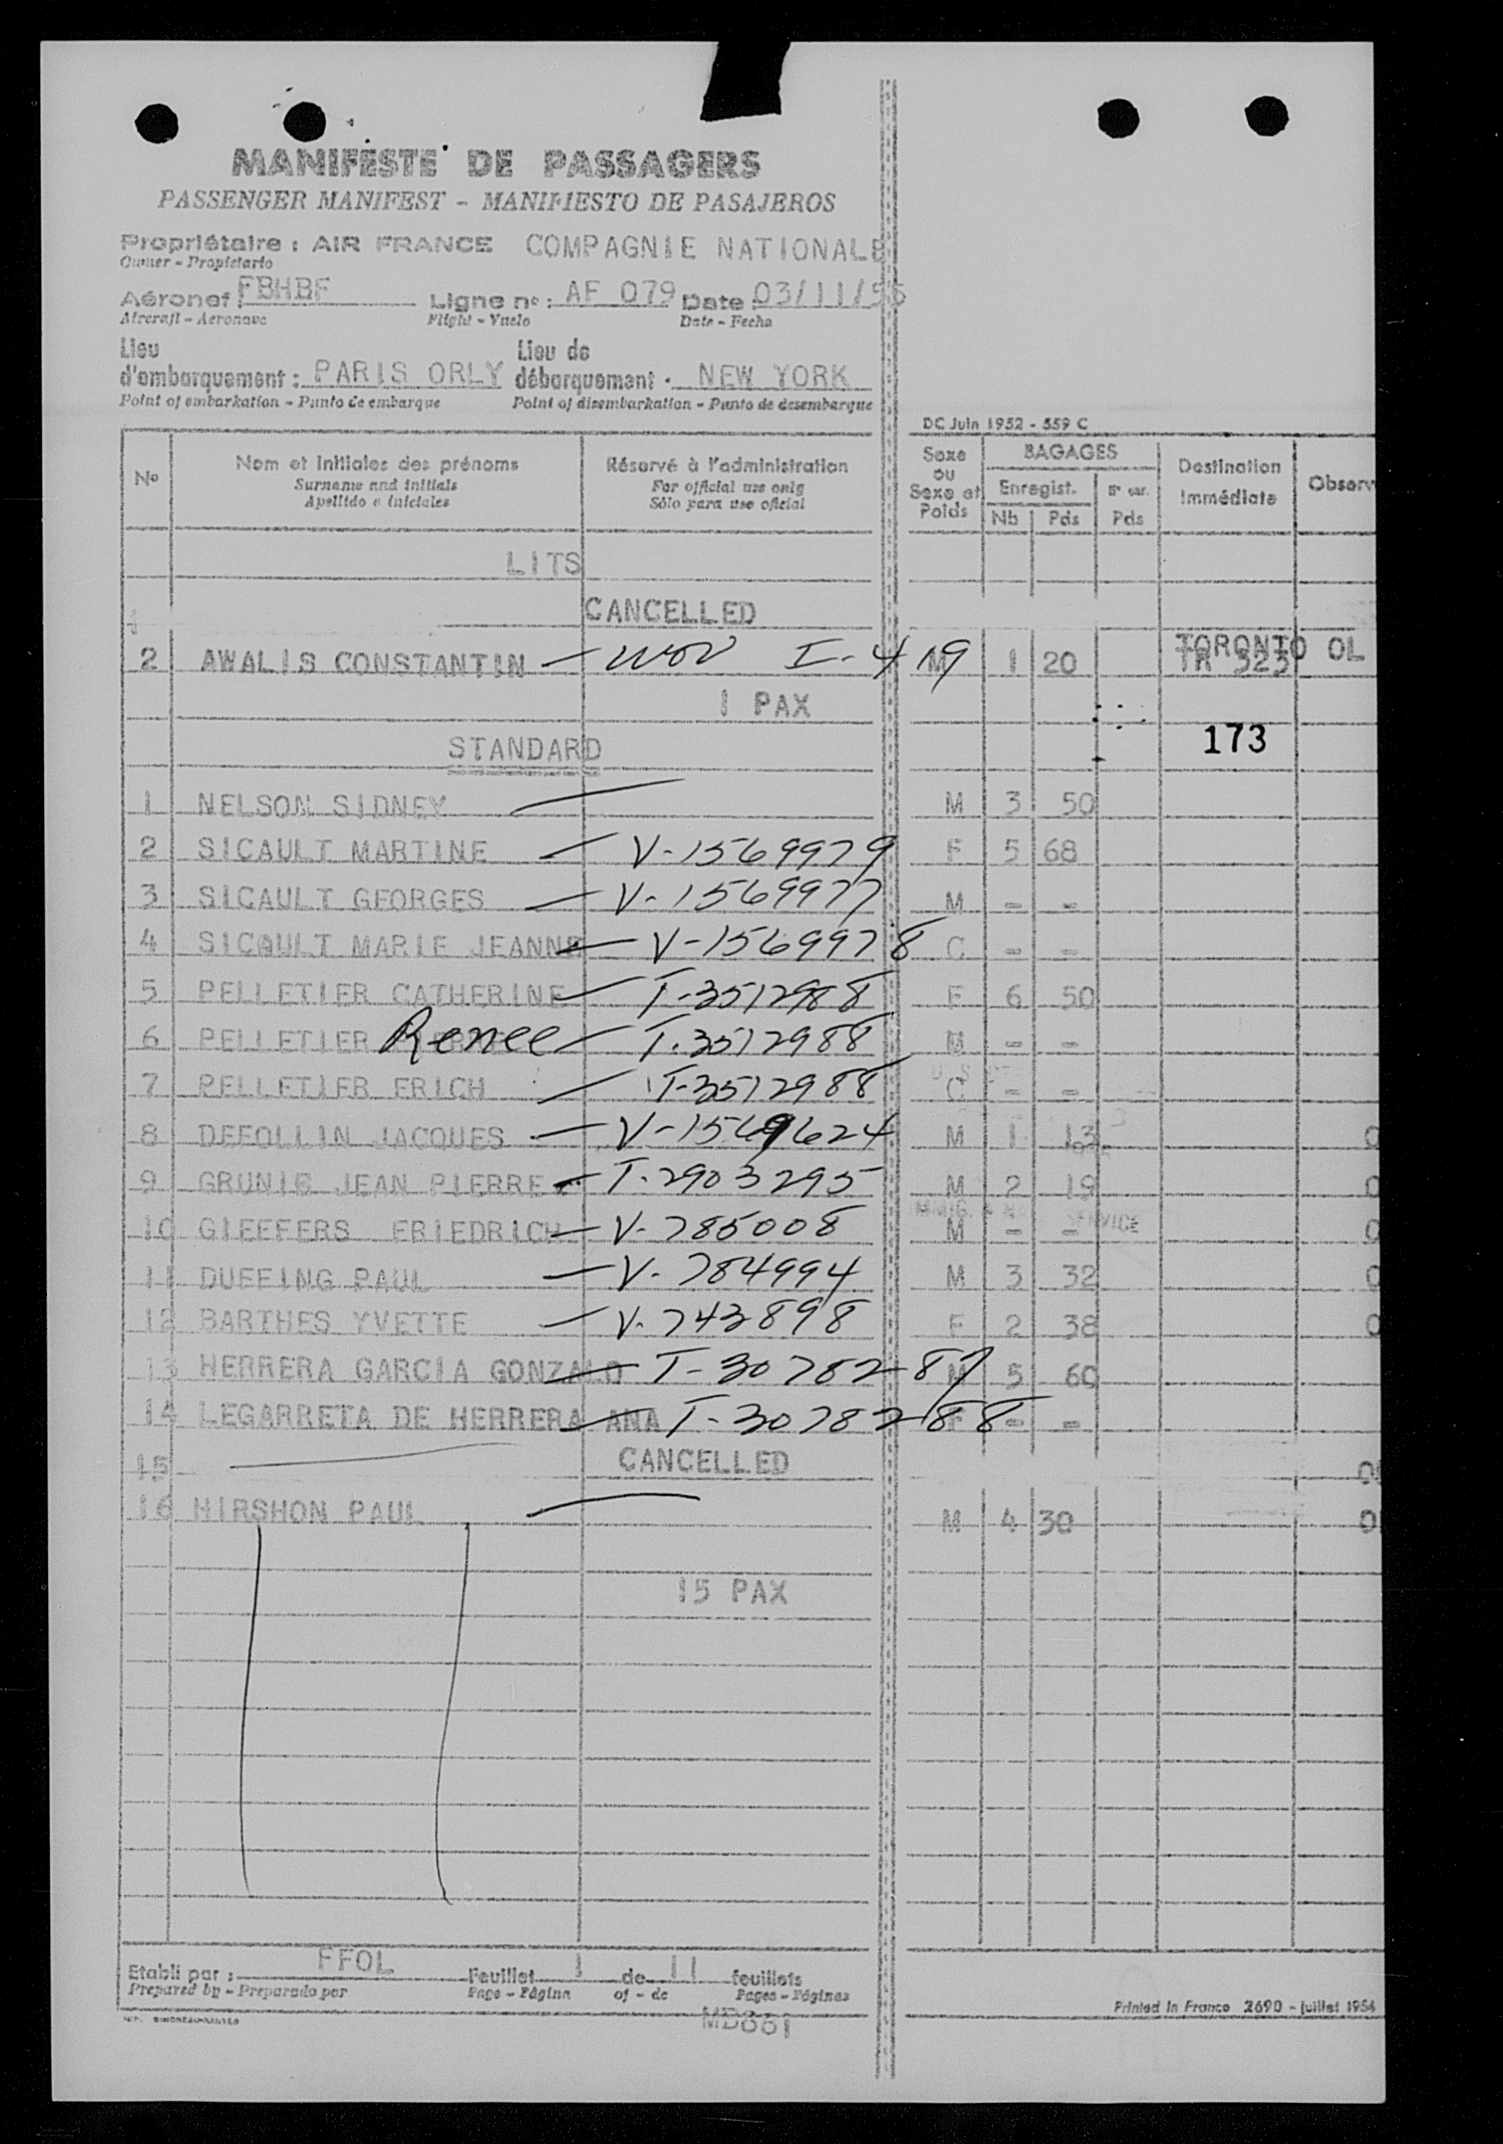 MANIFESTE DE PASSAGERS
PASSENGER MANIFEST - MANIFIESTO DE PASAJEROS
Propriétaire : AIR FRANCE COMPAGNIE NATIONALE
Owner - Propietario
Aéronef : FBHBF Ligne n° : AF 079 Date : 03/11/55
Aircraft - Aeronave Flight - Vuelo Date - Fecha
Lieu d'embarquement : PARIS ORLY Lieu de débarquement : NEW YORK
Point of embarkation - Punto de embarque Point of disembarkation - Punto de desembarque
DC Juin 1952 - 559 C
No Nom et Initiales des prénoms Réservé à l'administration Sexe ou Sexe et Poids BAGAGES Destination Immédiate Observ
Surname and initials For official use only Enregist.
Apellido e iniciales Sólo para uso oficial Nb Pds Pds
LITS
CANCELLED
2 AWALIS CONSTANTIN I-419 M 1 20 TORONTO OL
1 PAX
173
STANDARD
1 NELSON SIDNEY M 3 50
2 SICAULT MARTINE V-1569979 F 5 68
3 SICAULT GEORGES V-1569977 M - -
4 SICAULT MARIE JEANNE V-1569978 C - -
5 PELLETIER CATHERINE T-3512988 F 6 50
6 PELLETIER Renee T-3512988 M - -
7 PELLETIER ERICH T-3512988 C - -
8 DEFOLLIN JACQUES V-1569624 M 1 13
9 GRUNIG JEAN PIERRE T-2903295 M 2 19
10 GIEFFERS FRIEDRICH V-785008 M - -
11 DUFFING PAUL V-784994 M 3 32
12 BARTHES YVETTE V-743898 F 2 38
13 HERRERA GARCIA GONZALO T-3078287 M 5 60
14 LEGARRETA DE HERRERA ANA T-3078288 F - -
15 CANCELLED
16 HIRSHON PAUL M 4 30
15 PAX
Etabli par : FFOL Feuillet 1 de 11 feuillets
Prepared by - Preparado por Page - Página of - de Pages - Páginas
MD861
Printed in France 2690 - juillet 1954